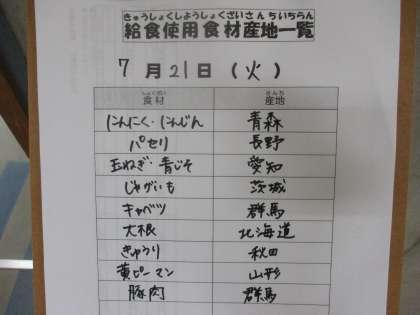 きゅうしょくしようしょくざいさんちいちらん
給食使用食材産地一覧
7月21日(火)
しょくざい さんち
食材 産地
にんにく・にんじん 青森
パセリ 長野
玉ねぎ・青じそ 愛知
じゃがいも 茨城
キャベツ 群馬
大根 北海道
きゅうり 秋田
黄ピーマン 山形
豚肉 群馬